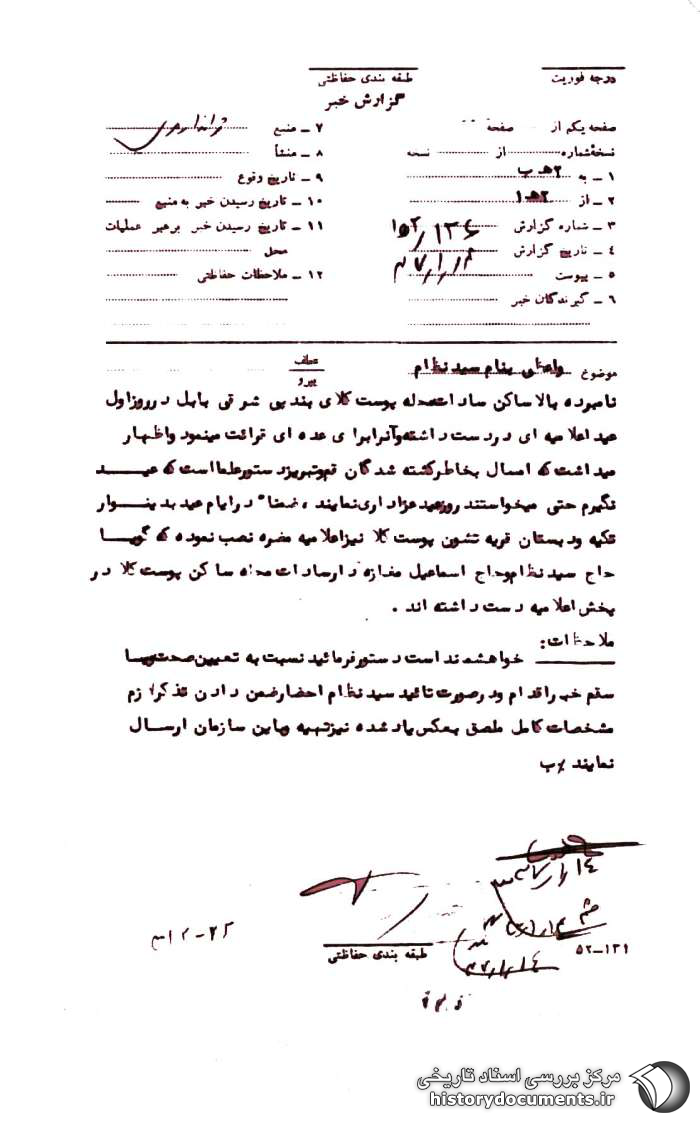 درجه فوریت
طبقه بندی حفاظتی
گزارش خبر
صفحه یکم از صفحه
نسخهٔ شماره از نسخه
۱ ـ به ۲هـ ب
۲ ـ از ۲هـ ۱
۳ ـ شماره گزارش
۴ ـ تاریخ گزارش
۵ ـ پیوست
۶ ـ گیرندگان خبر
۷ ـ منبع
۸ ـ منشأ
۹ ـ تاریخ وقوع
۱۰ ـ تاریخ رسیدن خبر به منبع
۱۱ ـ تاریخ رسیدن خبر برهبر عملیات
محل
۱۲ ـ ملاحظات حفاظتی
موضوع واعظی بنام سید نظام
عطف
پیرو
نامبرده بالا ساکن سادات محله پوست کلای بندپی شرقی بابل در روز اول
عید اعلامیه ای در دست داشته وآنرا برای عده ای قرائت مینمود واظهار
میداشت که امسال بخاطر کشته شدگان قم وتبریز دستور علما است که عید
نگیرم حتی میخواستند روز عید عزاداری نمایند ، ضمنا" در ایام عید بدیوار
تکیه ودبستان قریه تشون پوست کلا نیز اعلامیه مضره نصب نموده که گویا
حاج سید نظام وحاج اسماعیل مغازه دار سادات محله ساکن پوست کلا در
پخش اعلامیه دست داشته اند .
ملاحظات :
خواهشمند است دستور فرمائید نسبت به تعیین صحت ویا
سقم خبر اقدام ودر صورت تائید سید نظام احضار ضمن دادن تذکر لازم
مشخصات کامل ملصق بعکس یاد شده نیز تهیه وباین سازمان ارسال
نمایند
طبقه بندی حفاظتی
۵۲-۱۳۱
مرکز بررسی اسناد تاریخی
historydocuments.ir